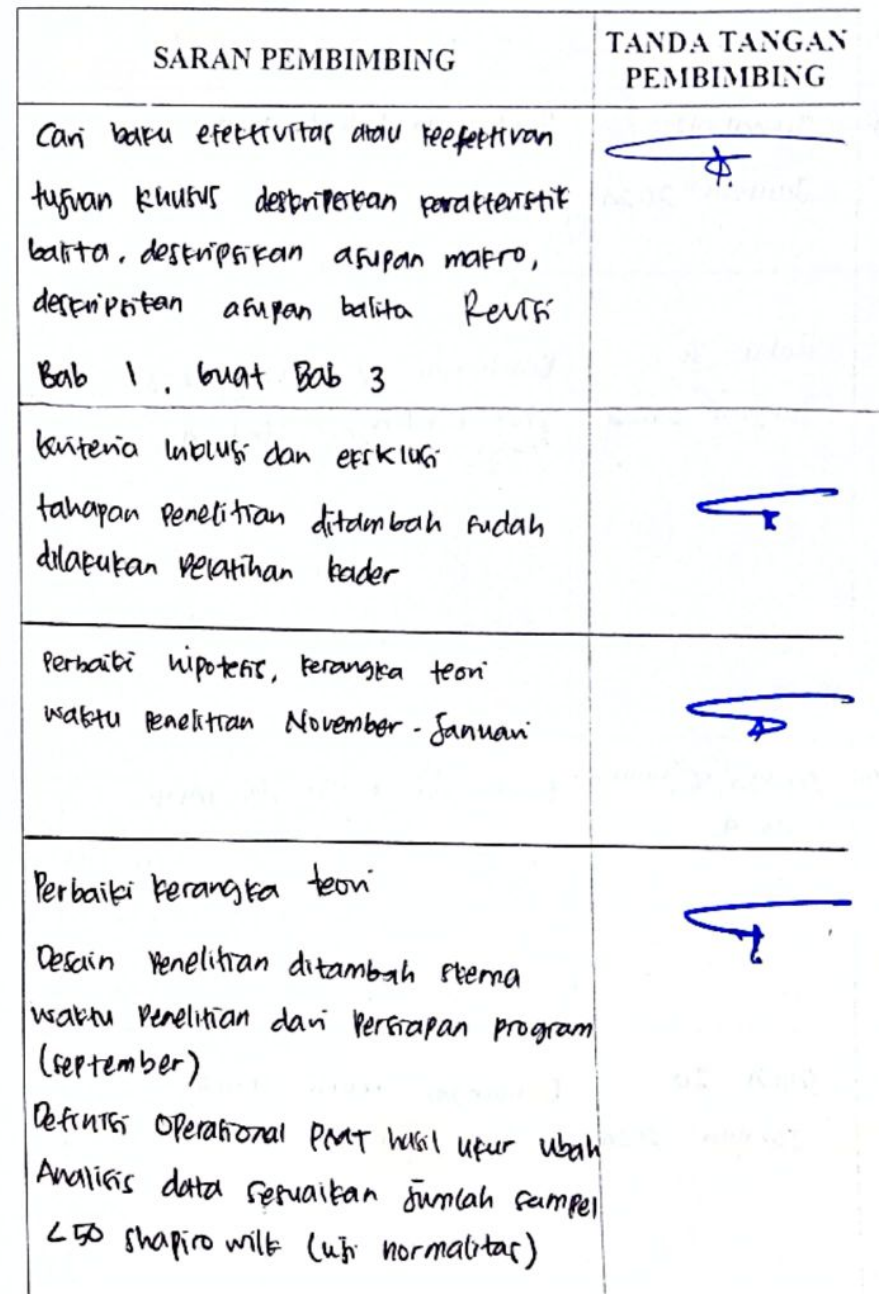 SARAN PEMBIMBING
TANDA TANGAN
PEMBIMBING
Cari baku efektivitas atau keefektivan
tujuan khusus deskripsikan karakteristik
balita, deskripsikan asupan makro,
deskripsikan asupan balita Revisi
Bab 1, buat Bab 3
kriteria inklusi dan eksklusi
tahapan Penelitian ditambah sudah
dilakukan Pelatihan kader
Perbaiki hipotesis, kerangka teori
waktu Penelitian November - Januari
Perbaiki kerangka teori
Desain Penelitian ditambah skema
waktu Penelitian dari Persiapan program
(september)
Definisi Operasional PMT hasil ukur ubah
Analisis data sesuaikan jumlah sampel
<50 shapiro wilk (uji normalitas)